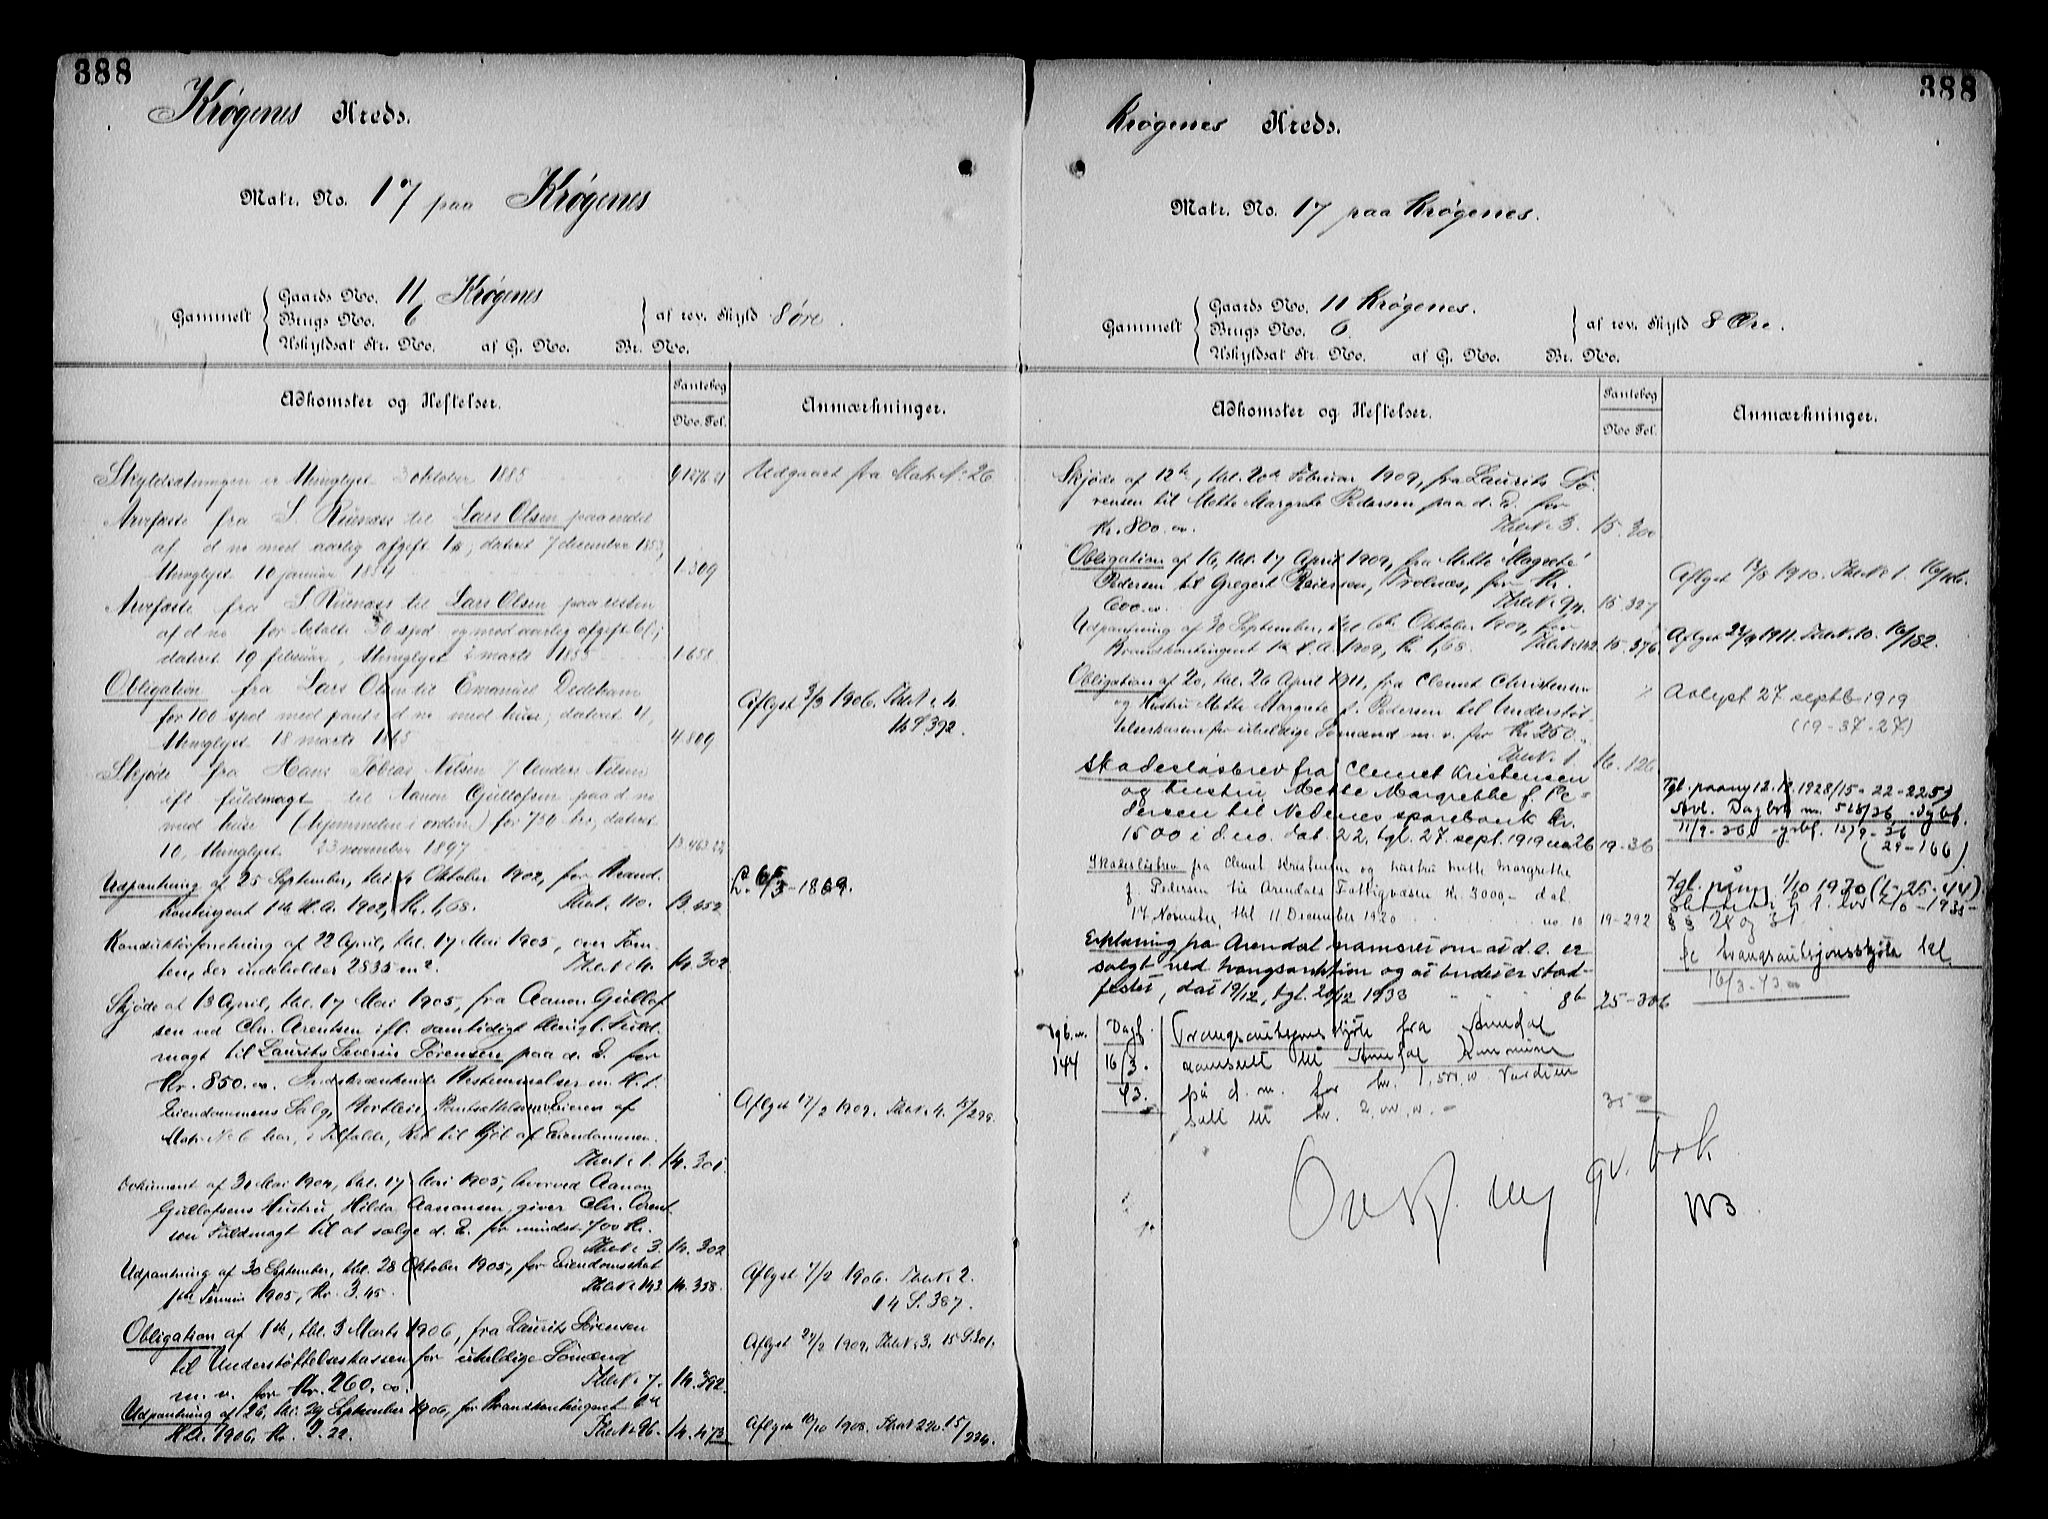 388
Krøgenes Kreds.
Matr. No. 17 paa Krøgenes
Gammelt
Gaards No. 11 Krøgenes
Brugs No. 6
Uskyldsat Str. No. af G. No. Br. No.
af rev. Skyld 8 øre.
Adkomster og Heftelser.
Pantebog
No. Fol.
Anmærkninger.
Skyldsætningen er thinglyst 3 oktober 1885
Udgaaet fra Matr. No 26
Arvefæste fra S. til Lars Olsen paa endel
af d no med aarlig afgift dateret 7 december 1853,
thinglyst 10 januar 1854 1.309
Arvefæste fra S. til Lars Olsen paa resten
af d no for betalte 30 spd og med aarlig afgift
dateret 19 februar, thinglyst 2 marts 1855 1.658
Obligation fra Lars Olsen til Emanuel Dedekam
for 100 spd med pant i d no med huse; dateret 11,
thinglyst 18 marts 4.809
Aflyst 3/3 1906. No 4
14 S. 392.
Skjøde fra Hans Tobias Nilsen / Anders Nilsen
ifl. fuldmagt til Aanon Gullofsen paa d no
med huse (hjemmelen i orden) for 750 kr, dateret
10, thinglyst 23 november 1897 13.463.
Udpantning af 25 September, thl. Oktober 1902, for Brand-
kontingent 1ste H. A. 1902, Kr. 1,68. No 110. 13.452
Konduktørforretning af 22 April, thl. 17 Mai 1905, over Tom-
ten, der indeholder 2835 m². 14.302
Skjøde af 13 April, thl. 17 Mai 1905, fra Aanon Gullof-
sen ved Chr. Arentsen ifl. samtidigt thingl. Fuld-
magt til Laurits Severin Sørensen paa d. E. for
Kr. 850.00. Indskrænkende Bestemmelser m. H. t.
Eiendommens Salg, Bortleie, Pantsættelse. Eieren af
Matr. No 6 har, i Tilfælde, Ret til Kjøb af Eiendommen.
No 1. 14.301.
Aflyst 17/2 1909. No 4. 15/299.
Dokument af 31 Mai 1904, thl. 17 Mai 1905, hvorved Aanon
Gullofsens Hustru, Hilda Aanonsen giver Chr. Arent-
sen Fuldmagt til at sælge d. E. for mindst 700 Kr.
No 3. 14.302
Udpantning af 30 September, thl. 28 Oktober 1905, for Eiendomsskat
1ste Termin 1905, Kr. 3.45. No 143 14.358.
Aflyst 7/2 1906. No 2.
14 S. 387.
Obligation af 1ste, thl. 3 Marts 1906, fra Laurits Sørensen
til Understøttelseskassen for uheldige Sømænd
m. v. for Kr. 260.00. No 7. 14.392.
Aflyst 27/2 1909, No 3. 15 S. 301.
Udpantning af 26, thl. 29 September 1906, for Brandkontingent
H. A. 1906, Kr. 2.22. No 96. 14.473
Aflyst 10/10 1908. No 220. 15/224.
388
Krøgenes Kreds.
Matr. No. 17 paa Krøgenes.
Gammelt
Gaards No. 11 Krøgenes.
Brugs No. 6
Uskyldsat Str. No. af G. No. Br. No.
af rev. Skyld 8 Øre.
Adkomster og Heftelser.
Pantebog
No Fol.
Anmærkninger.
Skjøde af 12te, thl. 20de Februar 1909, fra Laurits Sø-
rensen til Mette Margrete Pedersen paa d. E. for
Kr. 800.00. No 3. 15.300
Obligation af 16, thl. 17 April 1909, fra Mette Magrete
Pedersen til Gregert Reiersen, for Kr.
600.00. No 94. 15.327
Aflyst 17/8 1910. No 1. 16/
Udpantning af 30 September, thl. Oktober 1909, for
Brandkontingent H. A. 1909, Kr. 1,68. No 142 15.376.
Aflyst 23/9 1911. No 10. 16/182.
Obligation af 20, thl. 26 April 1911, fra Clemet Christensen
og Hustru Mette Margrete f. Pedersen til Understøt-
telseskassen for uheldige Sømænd m. v. for Kr. 250.
No 1. 16.126
Avlyst 27 septb 1919
(19-37-27)
Skadesløsbrev fra Clemet Kristensen
og hustru Mette Margrethe f. Pe-
dersen til Nedenes sparebank kr.
1500 i d. no. dat. 22, tgl. 27. sept. 1919 no 26 19-36
Tgl. paany 12. 1928/15-22-225)
Avl. Dagbok nr. 528/36. Dgbf.
11/9-36. 15/9-36
(29-166)
Skadesløsbrev fra Clemet Kristensen og hustru Mette Margrethe
f. Pedersen til Arendals Fattigvæsen Kr. 3000,- dat.
17 November, thl 11 December 1920 no 10 19-292
Tgl. påny 1/10 1930 (L-25-44)
Slettet i h. t. lov 7/6-1935
§§ 28 og 31
Erklæring fra Arendal namsrett om at d. e. er
solgt ved tvangsauktion og at budet er stad-
festet, dat 19/12, tgl. 20/12 1933 86 25-306
Se tvangsauksjonsskjøte tgl.
16/3-43
Dgb. nr.
144
Dagf.
16/3.
43.
Tvangsauksjonsskjøte fra Arendal
namsrett til Arendal kommune
på d. n. for kr. 1.500,00 Verdien
satt til kr. 2.000,00.- 35
Overf. ny gr. bok